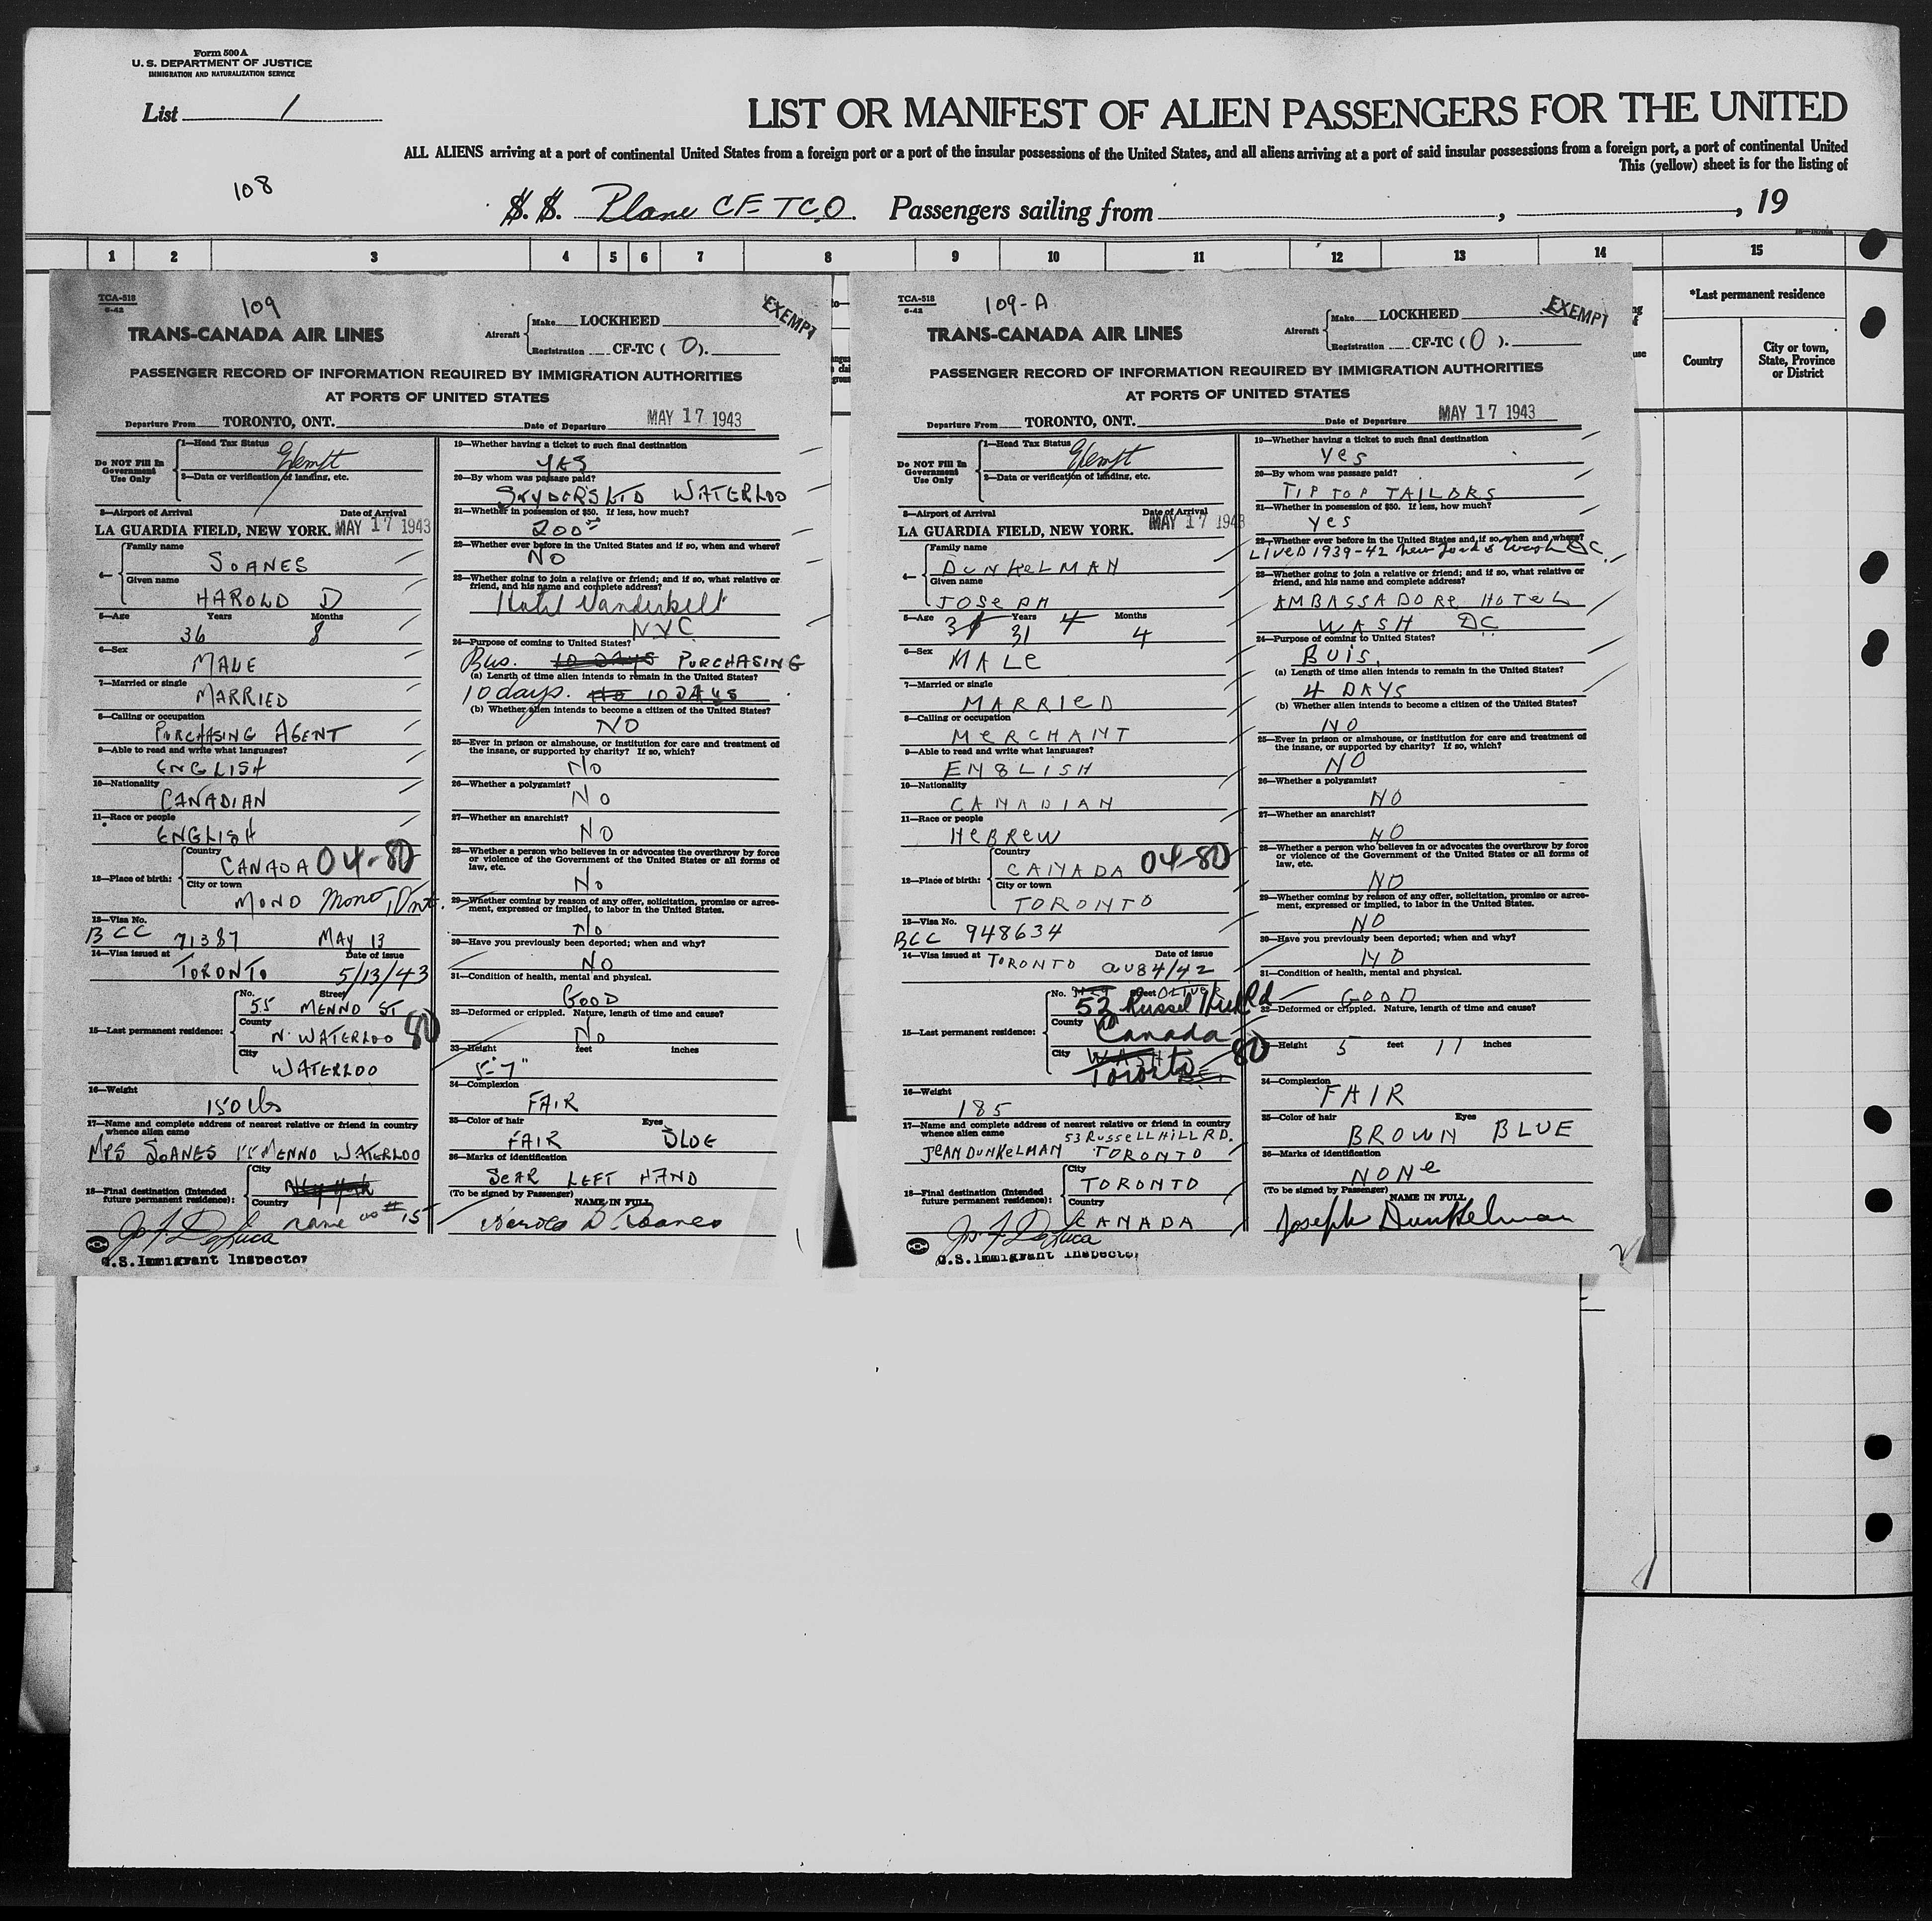 Form 500 A
U. S. DEPARTMENT OF JUSTICE
IMMIGRATION AND NATURALIZATION SERVICE
List 1
LIST OR MANIFEST OF ALIEN PASSENGERS FOR THE UNITED
ALL ALIENS arriving at a port of continental United States from a foreign port or a port of the insular possessions of the United States, and all aliens arriving at a port of said insular possessions from a foreign port, a port of continental United
This (yellow) sheet is for the listing of
108
S. S. Plane CF-TCO. Passengers sailing from , , 19
1 2 3 4 5 6 7 8 9 10 11 12 13 14 15
*Last permanent residence
Country
City or town, State, Province or District
TCA-518
6-42
109
EXEMPT
TRANS-CANADA AIR LINES
Aircraft
Make LOCKHEED
Registration CF-TC ( O ).
PASSENGER RECORD OF INFORMATION REQUIRED BY IMMIGRATION AUTHORITIES
AT PORTS OF UNITED STATES
Departure From TORONTO, ONT. Date of Departure MAY 17 1943
Do NOT Fill In Government Use Only
1—Head Tax Status
Exempt
2—Data or verification of landing, etc.
3—Airport of Arrival Date of Arrival
LA GUARDIA FIELD, NEW YORK. MAY 17 1943
4— Family name
SOANES
Given name
HAROLD D
5—Age Years Months
36 8
6—Sex
MALE
7—Married or single
MARRIED
8—Calling or occupation
PURCHASING AGENT
9—Able to read and write what languages?
ENGLISH
10—Nationality
CANADIAN
11—Race or people
ENGLISH
12—Place of birth:
Country
CANADA 04-80
City or town
MONO Mono Ont.
13—Visa No.
BCC 71387 MAY 13
14—Visa issued at Date of issue
TORONTO 5/13/43
15—Last permanent residence:
No. Street
55 MENNO ST
County
N. WATERLOO 80
City
WATERLOO
16—Weight
150 lbs
17—Name and complete address of nearest relative or friend in country whence alien came
MRS SOANES 55 MENNO WATERLOO
18—Final destination (Intended future permanent residence):
City
New York
Country
same as # 15
Jos. F. DeLuca
U.S. Immigrant Inspector
19—Whether having a ticket to such final destination
YES
20—By whom was passage paid?
SNYDERS LTD WATERLOO
21—Whether in possession of $50. If less, how much?
200
22—Whether ever before in the United States and if so, when and where?
NO
23—Whether going to join a relative or friend; and if so, what relative or friend, and his name and complete address?
Hotel Vanderbilt
NYC
24—Purpose of coming to United States?
Bus. 10 DAYS PURCHASING
(a) Length of time alien intends to remain in the United States?
10 days. NO 10 DAYS
(b) Whether alien intends to become a citizen of the United States?
NO
25—Ever in prison or almshouse, or institution for care and treatment of the insane, or supported by charity? If so, which?
NO
26—Whether a polygamist?
NO
27—Whether an anarchist?
NO
28—Whether a person who believes in or advocates the overthrow by force or violence of the Government of the United States or all forms of law, etc.
NO
29—Whether coming by reason of any offer, solicitation, promise or agreement, expressed or implied, to labor in the United States.
NO
30—Have you previously been deported; when and why?
NO
31—Condition of health, mental and physical.
GOOD
32—Deformed or crippled. Nature, length of time and cause?
NO
33—Height feet inches
5-7"
34—Complexion
FAIR
35—Color of hair Eyes
FAIR BLUE
36—Marks of identification
SCAR LEFT HAND
(To be signed by Passenger) NAME IN FULL
Harold D. Soanes
TCA-518
6-42
109-A
EXEMPT
TRANS-CANADA AIR LINES
Aircraft
Make LOCKHEED
Registration CF-TC ( O ).
PASSENGER RECORD OF INFORMATION REQUIRED BY IMMIGRATION AUTHORITIES
AT PORTS OF UNITED STATES
Departure From TORONTO, ONT. Date of Departure MAY 17 1943
Do NOT Fill In Government Use Only
1—Head Tax Status
Exempt
2—Data or verification of landing, etc.
3—Airport of Arrival Date of Arrival
LA GUARDIA FIELD, NEW YORK. MAY 17 1943
4— Family name
DUNKELMAN
Given name
JOSEPH
5—Age Years Months
31 31 4 4
6—Sex
MALE
7—Married or single
MARRIED
8—Calling or occupation
MERCHANT
9—Able to read and write what languages?
ENGLISH
10—Nationality
CANADIAN
11—Race or people
HEBREW
12—Place of birth:
Country
CANADA 04-80
City or town
TORONTO
13—Visa No.
BCC 948634
14—Visa issued at Date of issue
TORONTO
15—Last permanent residence:
No. Street OLIVER
53 Russel Hill Rd
County
Canada
City WASH
Toronto 80
16—Weight
185
17—Name and complete address of nearest relative or friend in country whence alien came
53 RUSSELL HILL RD.
JEAN DUNKELMAN TORONTO
18—Final destination (Intended future permanent residence):
City
TORONTO
Country
CANADA
Jos. F. DeLuca
U.S. Immigrant Inspector
19—Whether having a ticket to such final destination
Yes
20—By whom was passage paid?
TIP TOP TAILORS
21—Whether in possession of $50. If less, how much?
Yes
22—Whether ever before in the United States and if so, when and where?
LIVED 1939-42 New York & Wash DC.
23—Whether going to join a relative or friend; and if so, what relative or friend, and his name and complete address?
AMBASSADORE HOTEL
WASH DC
24—Purpose of coming to United States?
BUIS.
(a) Length of time alien intends to remain in the United States?
4 DAYS
(b) Whether alien intends to become a citizen of the United States?
NO
25—Ever in prison or almshouse, or institution for care and treatment of the insane, or supported by charity? If so, which?
NO
26—Whether a polygamist?
NO
27—Whether an anarchist?
NO
28—Whether a person who believes in or advocates the overthrow by force or violence of the Government of the United States or all forms of law, etc.
NO
29—Whether coming by reason of any offer, solicitation, promise or agreement, expressed or implied, to labor in the United States.
NO
30—Have you previously been deported; when and why?
NO
31—Condition of health, mental and physical.
GOOD
32—Deformed or crippled. Nature, length of time and cause?
33—Height 5 feet 11 inches
34—Complexion
FAIR
35—Color of hair Eyes
BROWN BLUE
36—Marks of identification
NONE
(To be signed by Passenger) NAME IN FULL
Joseph Dunkelman